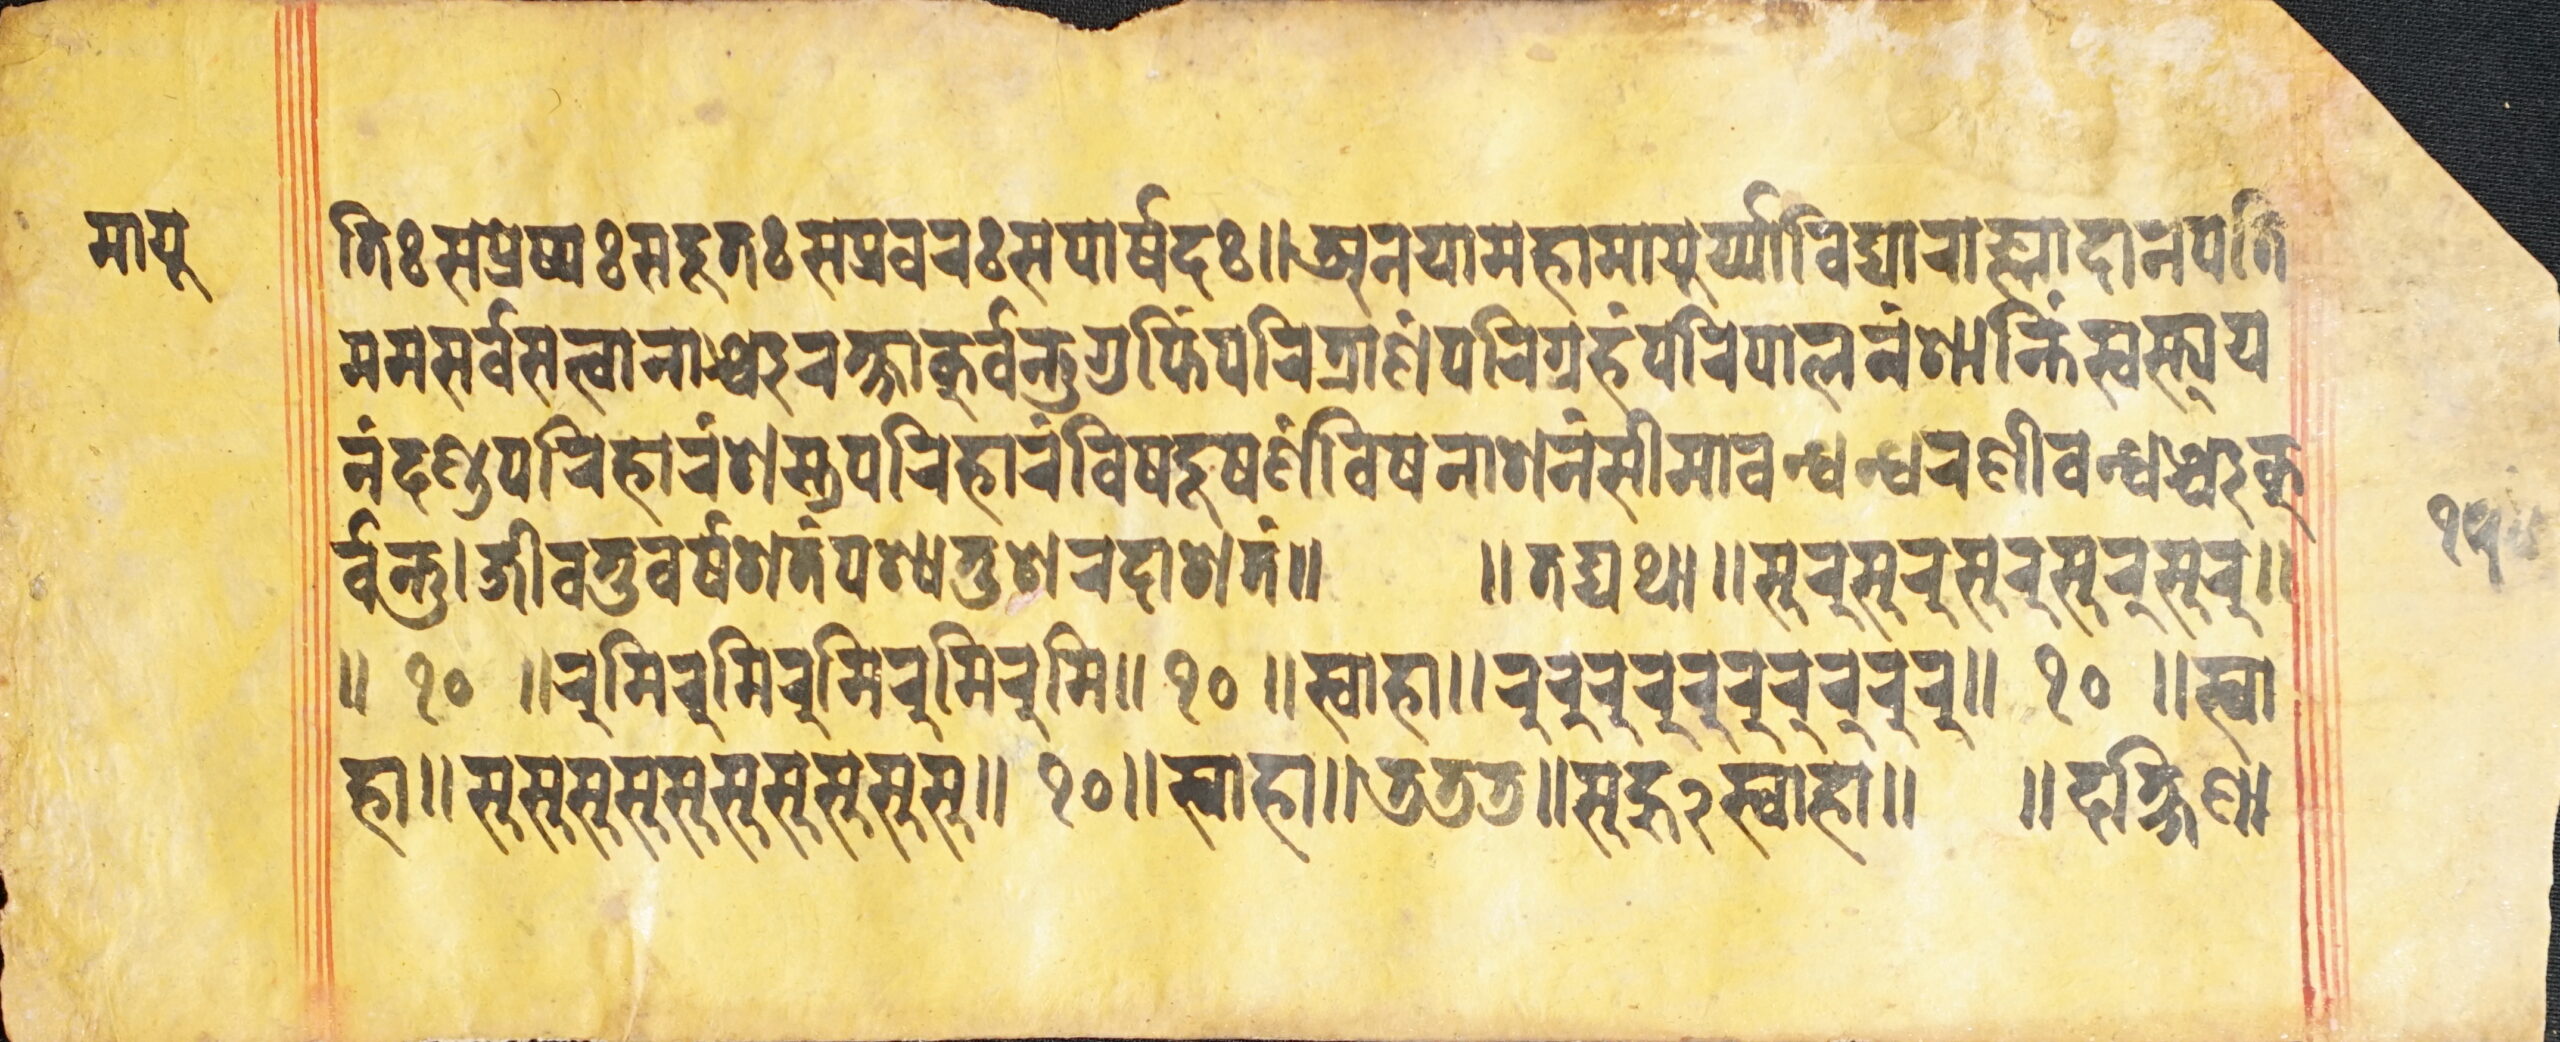 मायू
तिः सप्रेष्यः सदूतः सप्रवरः सपार्षदः॥ अनया महामायूर्य्या विद्याराज्ञा दानपति
मम सर्वसत्वानाञ्च रक्षा कुर्वन्तु गुप्तिं परित्राणं परिग्रहं परिपालनं शान्तिं स्वस्त्यय
नं दण्डपरिहारं शस्त्रपरिहारं विषदूषणं विषनाशनं सीमाबन्धन्धरणीबन्धञ्च कु
र्वन्तु। जीवतु वर्षशतं पश्यतु शरदाशतं॥ ॥ तद्यथा॥ सुरु सुरु सुरु सुरु सुरु॥
॥ १० ॥ रुमि रुमि रुमि रुमि रुमि॥ १० ॥ स्वाहा॥ रु रु रु रु रु रु रु रु रु॥ १० ॥ स्वा
हा॥ सु सु सु सु सु सु सु सु सु सु॥ १०॥ स्वाहा॥ ततत॥ सुह्रु२ स्वाहा॥ ॥ दक्षिणा
१५